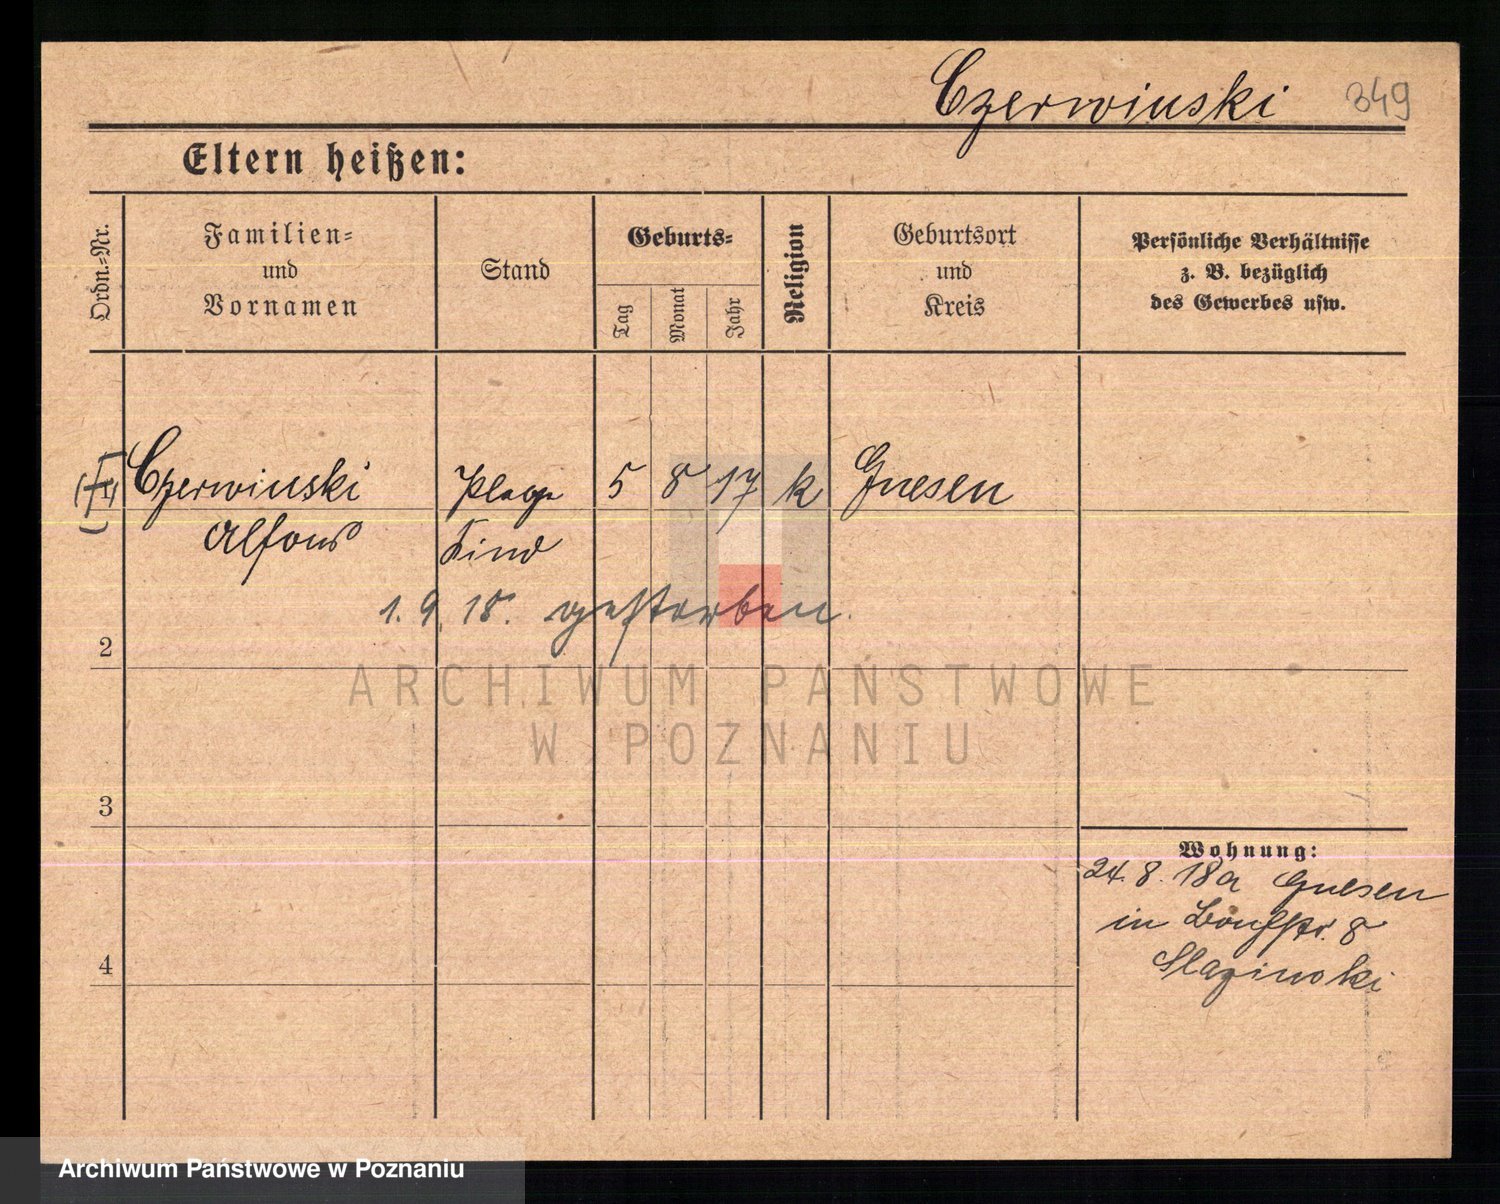 Czerwinski 349
Eltern heißen:
Ordn.-Nr.
Familien-
und
Vornamen
Stand
Geburts-
Tag
Monat
Jahr
Religion
Geburtsort
und
Kreis
Persönliche Verhältnisse
z. B. bezüglich
des Gewerbes usw.
Czerwinski 5 8 17 k Gnesen
Alfons Kind
1. 9. 18. gestorben.
2
ARCHIWUM PAŃSTWOWE
W POZNANIU
3
Wohnung:
24. 8. 18 a Gnesen
in 8
4
Archiwum Państwowe w Poznaniu